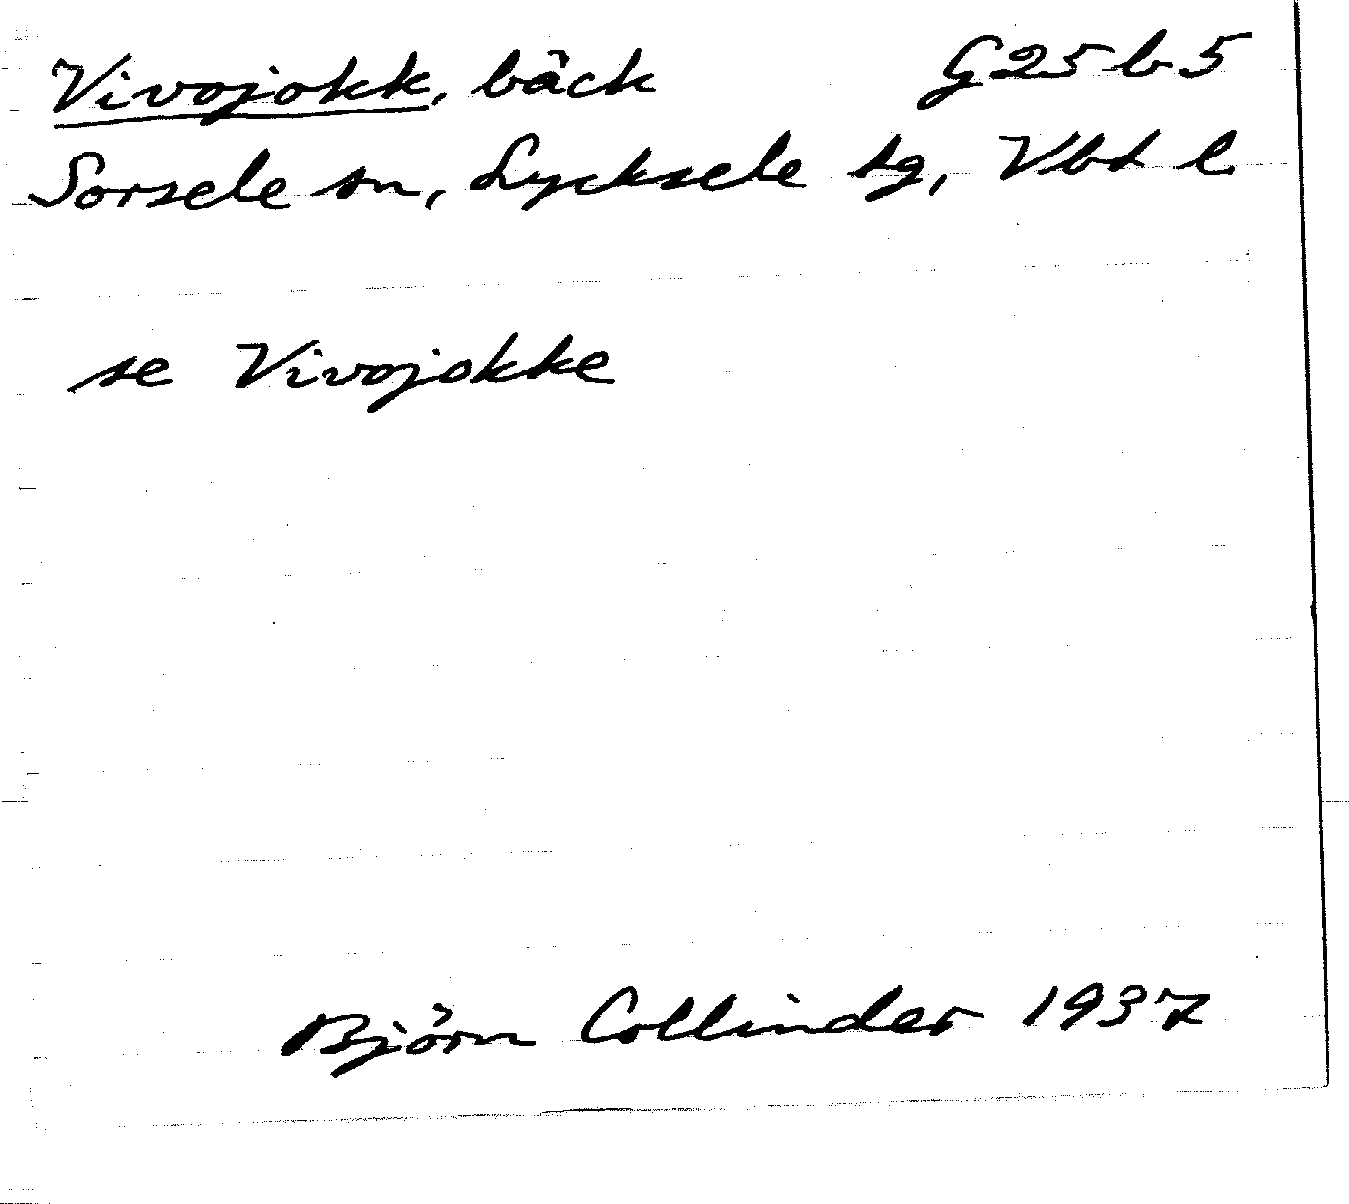 Vivojokk, bäck G25b5
Sorsele sn, Lycksele tg, Vbt l
se Vivojokke
Björn Collinder 1937